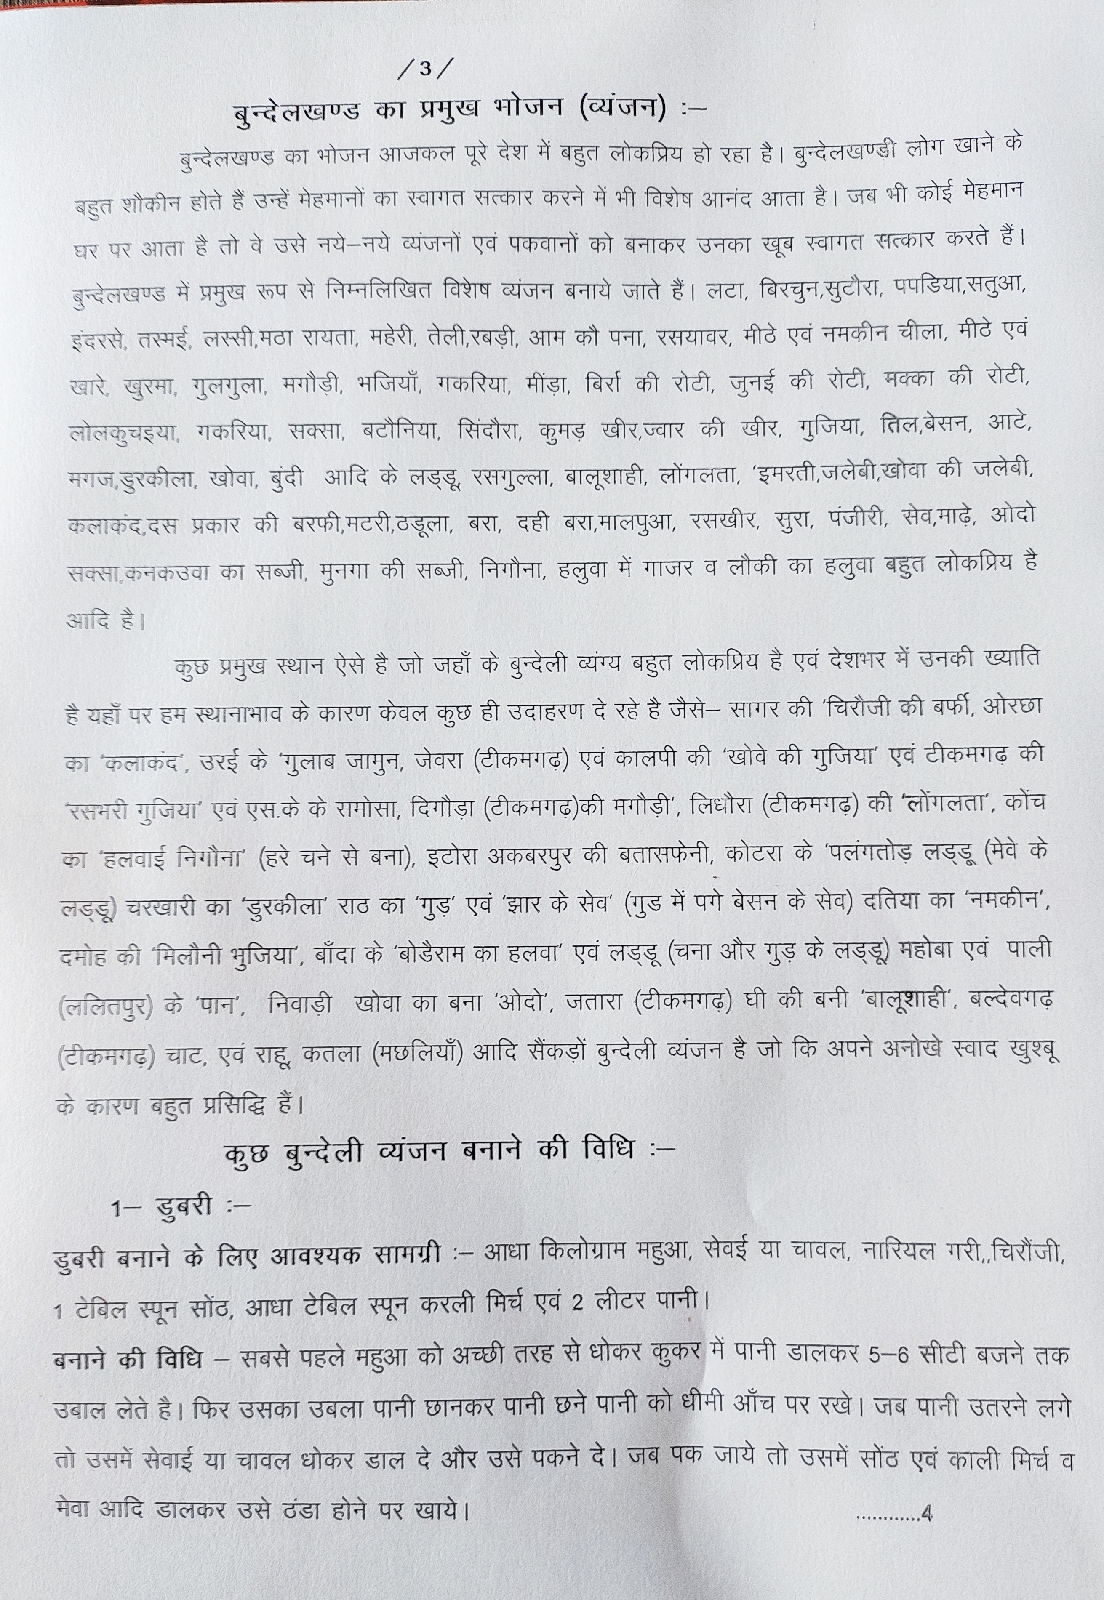 /3/
बुन्देलखण्ड का प्रमुख भोजन (व्यंजन) :–
बुन्देलखण्ड का भोजन आजकल पूरे देश में बहुत लोकप्रिय हो रहा है। बुन्देलखण्डी लोग खाने के
बहुत शौकीन होते हैं उन्हें मेहमानों का स्वागत सत्कार करने में भी विशेष आनंद आता है। जब भी कोई मेहमान
घर पर आता है तो वे उसे नये–नये व्यंजनों एवं पकवानों को बनाकर उनका खूब स्वागत सत्कार करते हैं।
बुन्देलखण्ड में प्रमुख रूप से निम्नलिखित विशेष व्यंजन बनाये जाते हैं। लटा, बिरचुन,सुटौरा, पपडिया,सतुआ,
इंदरसे, तस्मई, लस्सी,मठा रायता, महेरी, तेली,रबड़ी, आम कौ पना, रसयावर, मीठे एवं नमकीन चीला, मीठे एवं
खारे, खुरमा, गुलगुला, मगौड़ी, भजियाँ, गकरिया, मींड़ा, बिर्रा की रोटी, जुनई की रोटी, मक्का की रोटी,
लोलकुचइया, गकरिया, सक्सा, बटौनिया, सिंदौरा, कुमड़ खीर,ज्वार की खीर, गुजिया, तिल,बेसन, आटे,
मगज,डुरकीला, खोवा, बुंदी आदि के लड्डू, रसगुल्ला, बालूशाही, लोंगलता, 'इमरती,जलेबी,खोवा की जलेबी,
कलाकंद,दस प्रकार की बरफी,मटरी,ठडूला, बरा, दही बरा,मालपुआ, रसखीर, सुरा, पंजीरी, सेव,माढ़े, ओदो
सक्सा,कनकउवा का सब्जी, मुनगा की सब्जी, निगौना, हलुवा में गाजर व लौकी का हलुवा बहुत लोकप्रिय है
आदि है।
कुछ प्रमुख स्थान ऐसे है जो जहाँ के बुन्देली व्यंग्य बहुत लोकप्रिय है एवं देशभर में उनकी ख्याति
है यहाँ पर हम स्थानाभाव के कारण केवल कुछ ही उदाहरण दे रहे है जैसे– सागर की 'चिरौजी की बर्फी, ओरछा
का 'कलाकंद', उरई के 'गुलाब जामुन, जेवरा (टीकमगढ़) एवं कालपी की 'खोवे की गुजिया' एवं टीकमगढ़ की
'रसभरी गुजिया' एवं एस.के के समोसा, दिगौड़ा (टीकमगढ़)की मगौड़ी', लिधौरा (टीकमगढ़) की 'लोंगलता', कोंच
का 'हलवाई निगौना' (हरे चने से बना), इटोरा अकबरपुर की बतासफेनी, कोटरा के 'पलंगतोड़ लड्डू (मेवे के
लड्डू) चरखारी का 'डुरकीला' राठ का 'गुड़' एवं 'झार के सेव' (गुड में पगे बेसन के सेव) दतिया का 'नमकीन',
दमोह की 'मिलौनी भुजिया', बाँदा के 'बोडैराम का हलवा' एवं लड्डू (चना और गुड़ के लड्डू) महोबा एवं पाली
(ललितपुर) के 'पान', निवाड़ी खोवा का बना 'ओदो', जतारा (टीकमगढ़) घी की बनी 'बालूशाही', बल्देवगढ़
(टीकमगढ़) चाट, एवं राहू, कतला (मछलियाँ) आदि सैंकड़ों बुन्देली व्यंजन है जो कि अपने अनोखे स्वाद खुश्बू
के कारण बहुत प्रसिद्धि हैं।
कुछ बुन्देली व्यंजन बनाने की विधि :–
1– डुबरी :–
डुबरी बनाने के लिए आवश्यक सामग्री :– आधा किलोग्राम महुआ, सेवई या चावल, नारियल गरी,,चिरौंजी,
1 टेबिल स्पून सोंठ, आधा टेबिल स्पून करली मिर्च एवं 2 लीटर पानी।
बनाने की विधि – सबसे पहले महुआ को अच्छी तरह से धोकर कुकर में पानी डालकर 5–6 सीटी बजने तक
उबाल लेते है। फिर उसका उबला पानी छानकर पानी छने पानी को धीमी आँच पर रखे। जब पानी उतरने लगे
तो उसमें सेवाई या चावल धोकर डाल दे और उसे पकने दे। जब पक जाये तो उसमें सोंठ एवं काली मिर्च व
मेवा आदि डालकर उसे ठंडा होने पर खाये।
............4